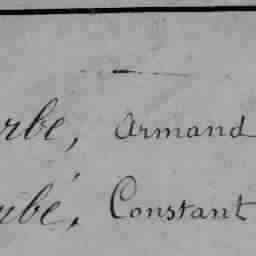 rbe, Armand
ubé, Constant